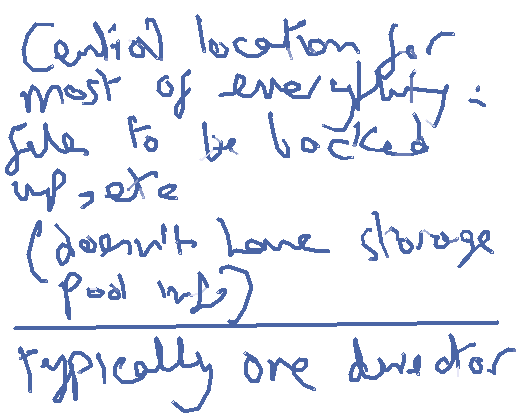 Central location for
most of everything :
files to be backed
up, etc
(doesn't have storage
pool info)
typically one director